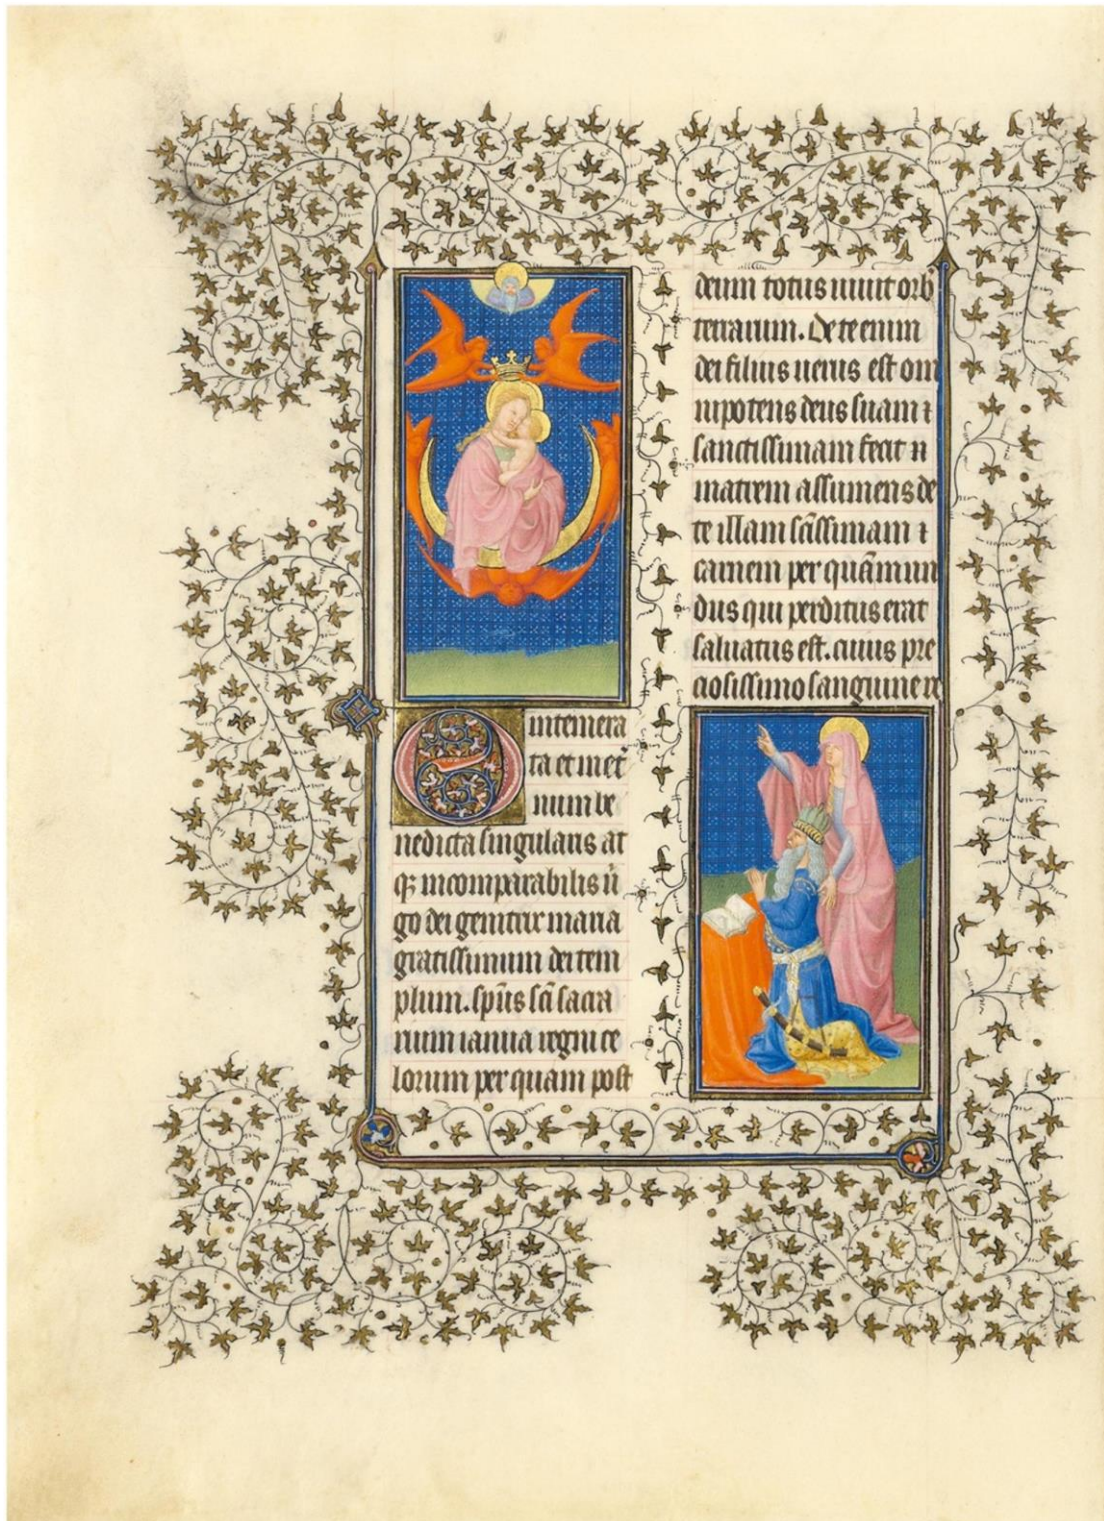 O intemera
ta et in et̾
num be
nedicta singularis at
qꝫ incomparabilis ū
go dei genitrix maria
gratissimum dei tem
plum. spūs sc̄i sacra
rium ianua regni ce
lorum per quam post
deum totus uiuit orb̾
terrarum. De te enim
dei filius uerus est om
nipotens deus suam ⁊
sanctissimam fecit
matrem assumens de
te illam sc̄issimam ⁊
carnem per quā mun
dus qui perditus erat
saluatus est. cuius pre
ciosissimo sanguine re